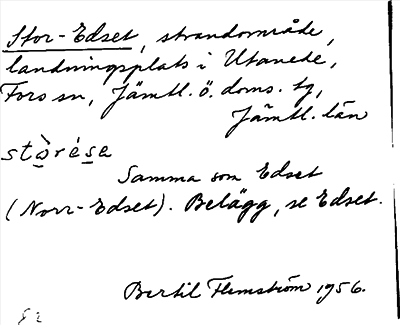 Stor-Edset, strandområde,
landningsplats i Utanede,
Fors sn, Jämtl. ö. doms. tg,
Jämtl. län
stò̱rése̱
Samma som Edset
(Norr-Edset). Belägg, se Edset.
Bertil Flemström 1956.